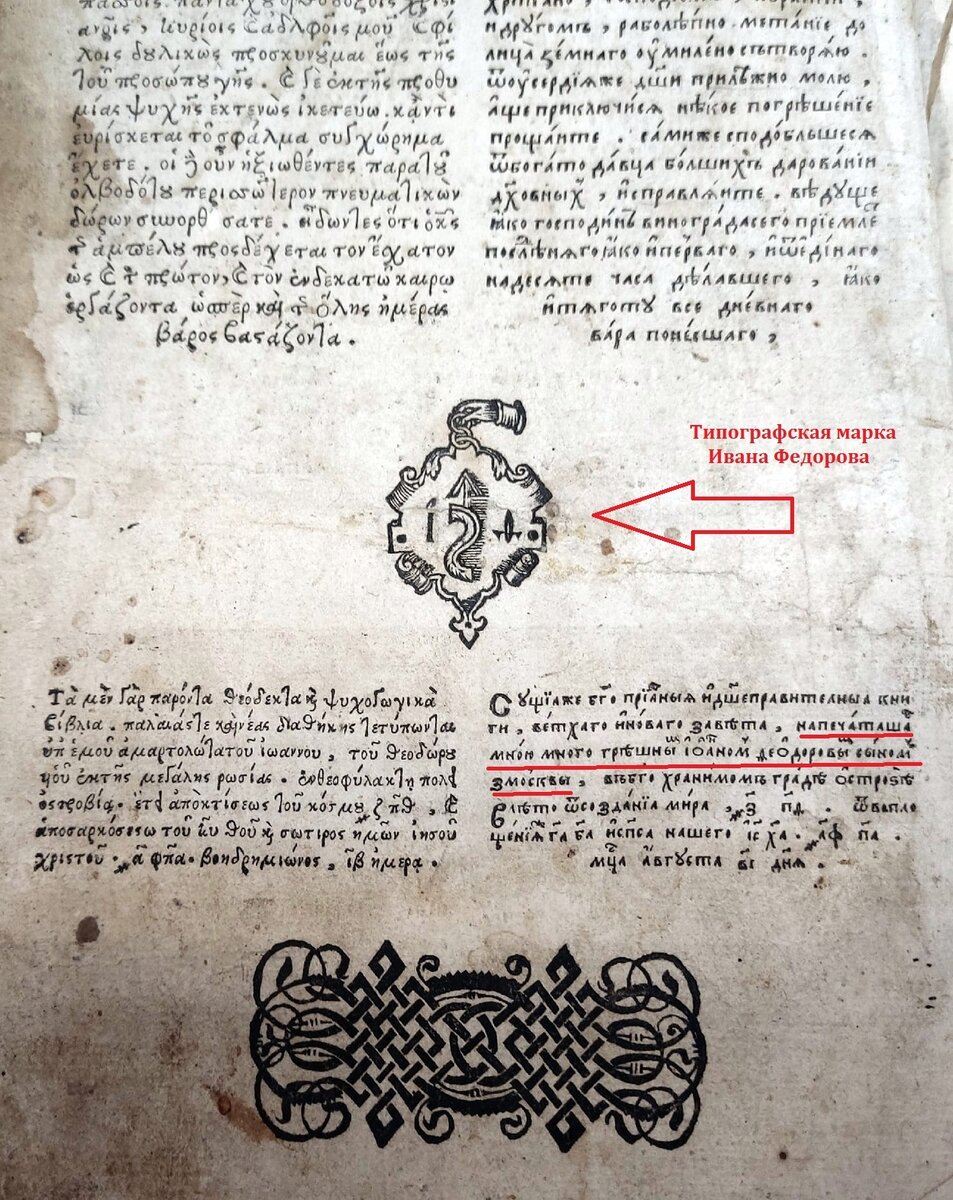 ἀνσις, κυρίοις ἀδελφοῖς μου ϗ φί
λοις δυλικῶς προσκυνοῦμαι ἕως τῆς
τοῦ προσώπου γῆς. ϗ δὲ ἐκτῆς προθυ
μίας ψυχῆς ἐκτενῶς ἱκετεύω. κἀντι
ευρίσκεται τὸ σφάλμα συδχώρημα
ἔχετε. οἱ γοῦν ηξιωθέντες παρατοῦ
ὀλβοδότου περισσώτερον πνευματικῶν
δώρων σιωορθώσατε. εἰδωντες ὅτι ὁ κς
τ ἀμπέλου προσδέχεται τον ἔχατον
ὡς ϗ τ πρῶτον, ϗ τὸν ἑνδεκάτω καιρω
ἐργάζοντα ὡσπερ καὶ τ ὅλης ἡμέρας
βάρος βαστάζοντα.
и другомъ, раболѣпно метанїе до
лица земнаго оумилено сътворяю.
ѿоусердїяже дш҃и прилѣжно молю,
аще приключися нѣкое погрѣшенїе
прощаите. самиже сподобльшеся
ѿбогато давца болшихъ дарованїи
дх҃овных, исправляите. вѣдуще
ꙗко господинъ виноградасего прїемле
послѣняго ꙗко иперваго, иѿединаго
надесяте часа дѣлавшего, ꙗко
итяготу все дневнаго
вара понесшаго,
Типографская марка
Ивана Федорова
і ѳ
Τὰ μὲν γὰρ παρόντα θεόδεκτα ϗ ψυχοδωγικὰ
βίβλια. παλαιᾶστε καὶ νέας διαθήκης τετύπωνται
ὑπ ἐμοῦ ἁμαρτολωτάτου ιωαννου, τοῦ θεοδώρου
υἱοῦ ἐκτῆς μεγάλης ρωσίας. ἐνθεοφύλακτῃ πολει
οστροβία. ἔτει ἀποκτίσεως τοῦ κόσμου ͵ζ πθ, ϗ
ἀποσαρκόσεως τοῦ κυ θοῦ ϗ σωτιρος ἡμῶν ἰησοῦ
χριστοῦ. ͵αφπα. βοηδρημιῶνος, ιβ ἡμέρα.
Сущїаже бг҃о прїатныя идш҃еправителныа кни
ги, ветхаго иноваго завѣта, напечаташася
мною многогрѣшным іоанном ѳеодоровым сыном
змосквы, въбг҃о хранимомъ градѣ острозѣ
влѣто ѿсозданїа мира, ҂з пд. ѿвопло
щенїѧ га҃ ба҃ испс҃а нашего іс҃ ха҃. ҂аф па.
мц҃а августа ві дня.